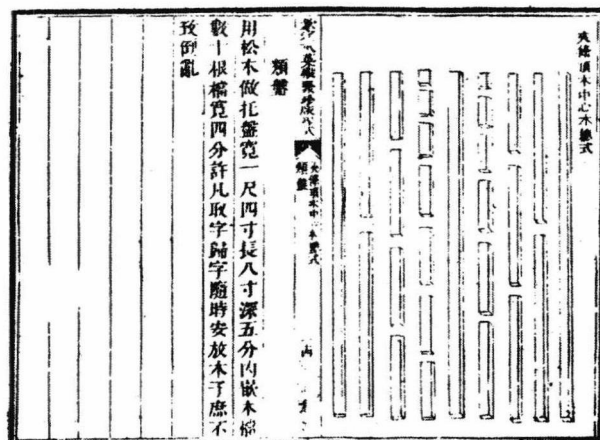 夾條頂木中心木總式
夾條頂木中心木總式
類盤
類盤
用松木做托盤寬一尺四寸長八寸深五分內嵌木檔
數十根檔寬四分許凡取字歸字隨時安放木子庶不
致倒亂